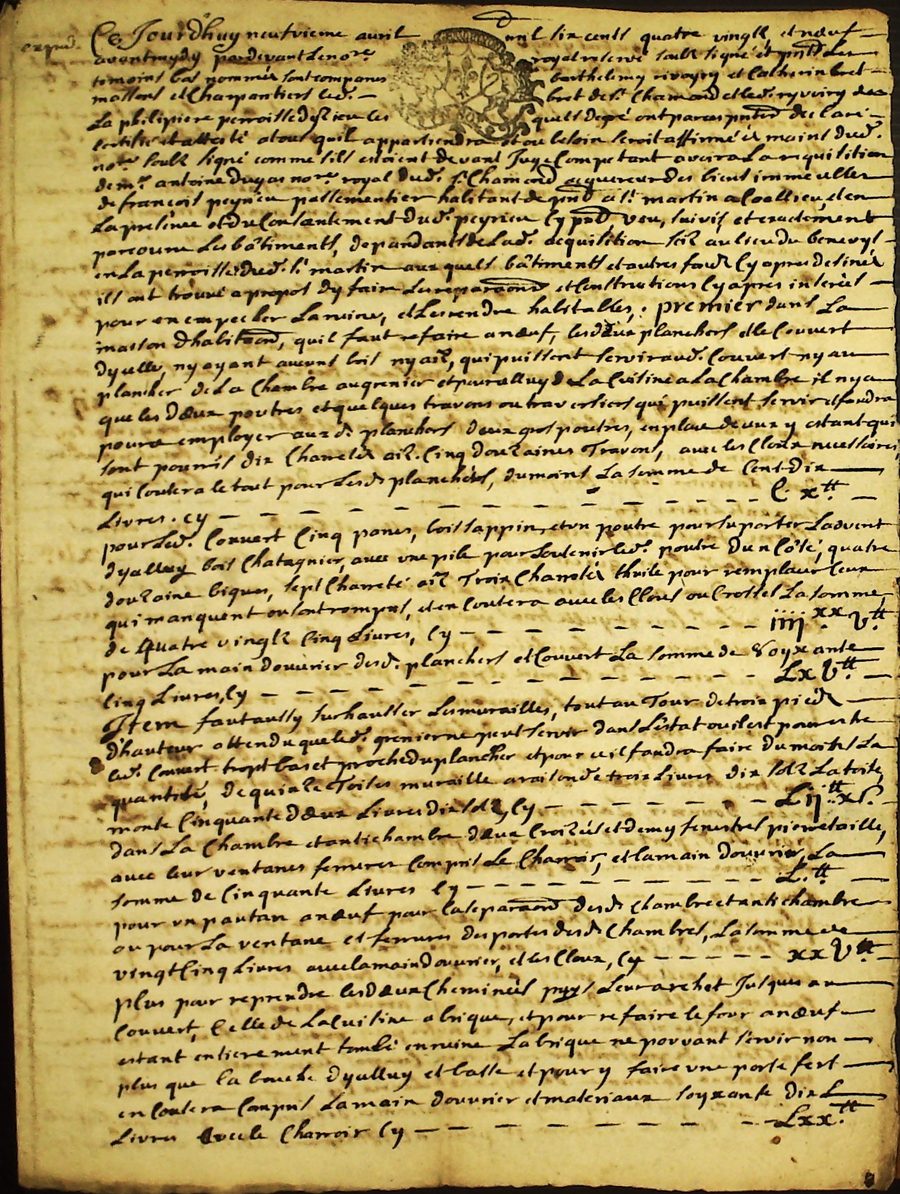 Ce Jourdhuy neufvieme avril mil six cents quatre vingtz et neuf
avant mydy pardevant le no.re royal reservé soubz signé et pnts les
temoins bas nommés sont comparus barthelemy rivoyry et Catherin bret
massons et Charpantiers led. bret de St Chamond et led. ryvoiry de
La philipiere perroisse de lesquels de gré ont par as pnter declaré
certifié et attesté a tous quil appartiendra et ou besoin seroit affirmé es mains dud.
no.re soubz signé comme sils estoient devant Juge Competant avoir a La requisition
de m.e antoine Dugas no.re royal dud. St Chamond acquereur des biens immeubles
de francois peyrieu passementier habitant de pnt a St martin a Coallieu, et en
La presence et du Consantement dud. peyrieu Cy pnt veu, suivis et exactement
parcouru Les bâtiments, depandants de Lad. acquisition sis au lieu du
en La perroisse dud. St martin aux quels bâtiments et autres fonds Cy apres
ils ont trouvé a propos dy faire Les reparaons et Constructions Cy apres
pour en empecher La ruine, et Les rendre habitables, : premier dans La
maison dhabitaon, quil faut refaire a nœuf, les dœux planchers et le Couvert
dyelle, ny ayant aucuns bois ny aix, qui puissent servir aud. Couvert ny au
plancher de La Chambre au grenier et pour alluy de La Cuisine a La Chambre il ny a
que les dœux poutres et quelques travons ou traversiers qui puissent servir et faudra
pour employer auxd. planchers deux gros poutres, en place de ceux y estant qui
sont pourris dix Charretés aix Cinq douzaines Travons, avec les Cloux necessaires,
qui Coutera le tout pour Lesd. planchers, du moins La somme de Cent dix
Livres. Cy — — — — C x ᵗᵗ
pour Led. Couvert Cinq panes, bois sappin, et un poutre pour suporter Ladvent
dyalluy bois Chatagnier, avec une pile pour soutenir led. poutre dun Côté, quatre
douzaine bigues, sept Charreté aix Trois Charretés thuile pour remplacer Ceux
qui manquent ou sont rompus, et en Coutera avec les Cloux ou Crosses La somme
de quatre vingtz Cinq Livres, Cy — — — — iiii xx V ᵗᵗ
pour La main douvrier desd. planchers et Couvert La somme de Soyxante
Cinq Livres, Cy — — — — Lx V ᵗᵗ
Item faut aussy surhausser Les murailles, tout au Tour de trois pieds
dhauteur attendu que led. grenier ne peut servir dans Lestat ou il est pour estre
led. Couvert trop bas et proche du plancher et pour ce il faudra faire du moins La
quantité, de quinze Toises muraille a raison de trois Livres dix solz La toise,
monte Cinquante dœux Livres dix solz, Cy — — — — Lij ᵗᵗ x s.
dans La Chambre et antichambre dœux Croizées et demy fenestres pierre taille,
avec leur ventanes ferrures Compris Le Charroir, et la main douvrier, La
somme de Cinquante Livres Cy — — — — L ᵗᵗ
pour un pautan a nœuf pour la separaon desd. Chambre et antichambre
ou pour La ventane et ferrures des portes desd. Chambres, La somme de
vingt Cinq Livres avec la main douvrier, et les Cloux, Cy — — — xx V ᵗᵗ
plus pour reprendre les dœux Cheminées puys Leur archet Jusques au
Couvert, Celle de La Cuisine a brique, et pour refaire le four a nœuf
estant entierement tombé en ruine La brique ne pouvant servir non
plus que la bouche dyalluy et basse et pour y faire une porte fert
en Coutera Compris La main douvrier et materiaux soyxante dix
Livres avec le Charroir Cy — — — — Lxx ᵗᵗ